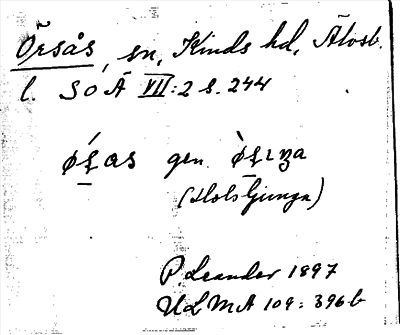 Örsås, sn, Kinds hd, Älvsb.
l. SOÄ VII:2 s. 244
gen.
(Holsljunga)
P. Leander 1897
ULMA 109: 396 b